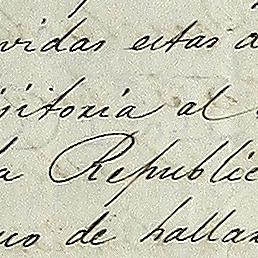 vidas estas a
sitoria al
a Republic
uo de hallar